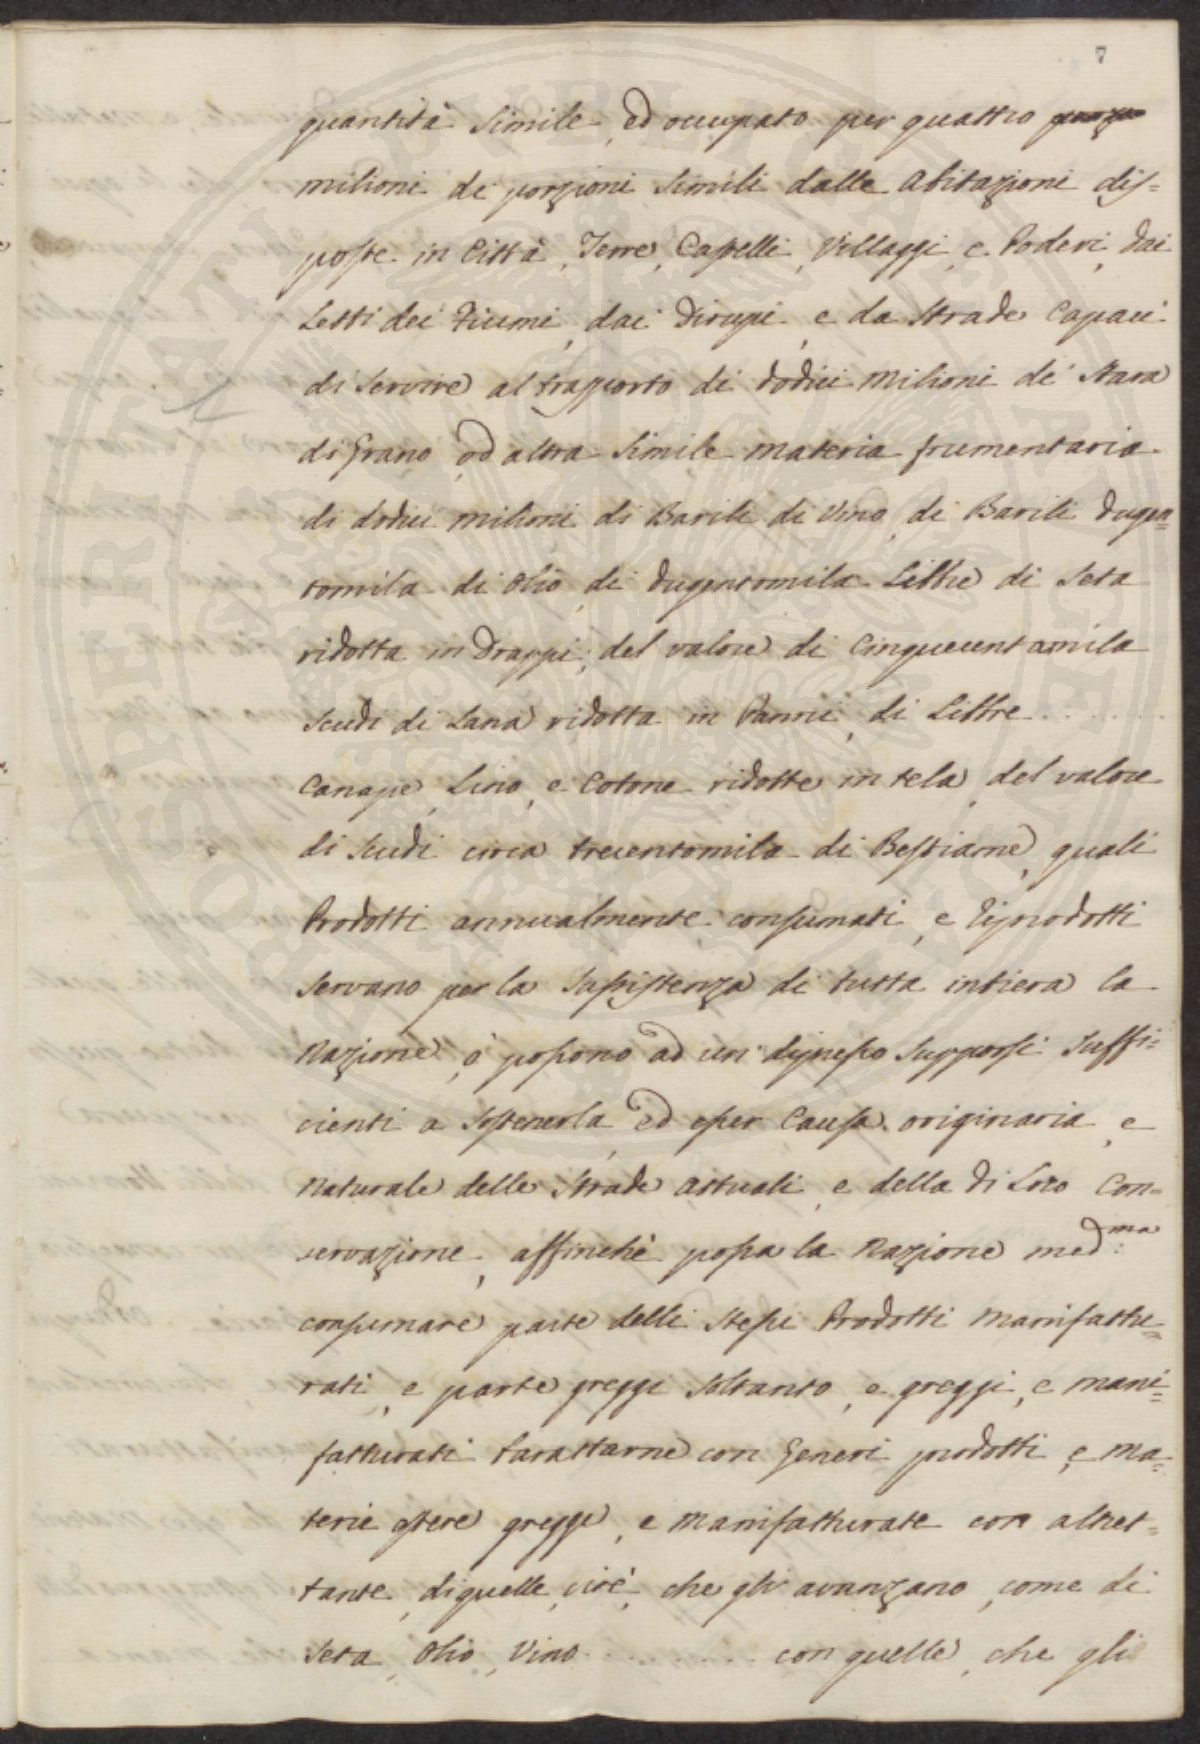 7
quantità simile, ed occupato per quattro
milioni di porzioni simili dalle Abitazioni dis=
poste in Città, Terre, Castelli, Villaggi, e Poderi, dai
Letti dei Fiumi, dai Dirupi, e da Strade capaci
di servire al trasporto di dodici milioni di Stara
di Grano, od altra simile materia frumentaria
di dodici milioni di Barili di Vino, di Barili dugen=
tomila di Olio, di dugentomila Libbre di Seta
ridotta in Drappi, del valore di cinquecentamila
Scudi di Lana ridotta in Panni, di Libbre . . . . . .
Canape, Lino, e Cotone ridotte in tela, del valore
di Scudi circa trecentomila di Bestiame, quali
Prodotti annualmente consumati, e riprodotti
servano per la sussistenza di tutta intiera la
Nazione, ò possono ad un dipresso supporsi suffi=
cienti a sostenerla, ed esser Causa originaria, e
naturale delle Strade attuali, e della di Loro Con=
servazione, affinchè possa la Nazione med:ma
consumare parte delli stessi Prodotti manifattu=
rati, e parte greggi soltanto, e greggi, e mani=
fatturati barattarne con Generi prodotti, e ma=
terie estere gregge, e manifatturate con altret=
tante, di quelle, cioè, che gli avanzano, come di
Seta, Olio, Vino . . . . . . . . . con quelle, che gli
PROSPERITATI PUBLICAE AUGENDAE